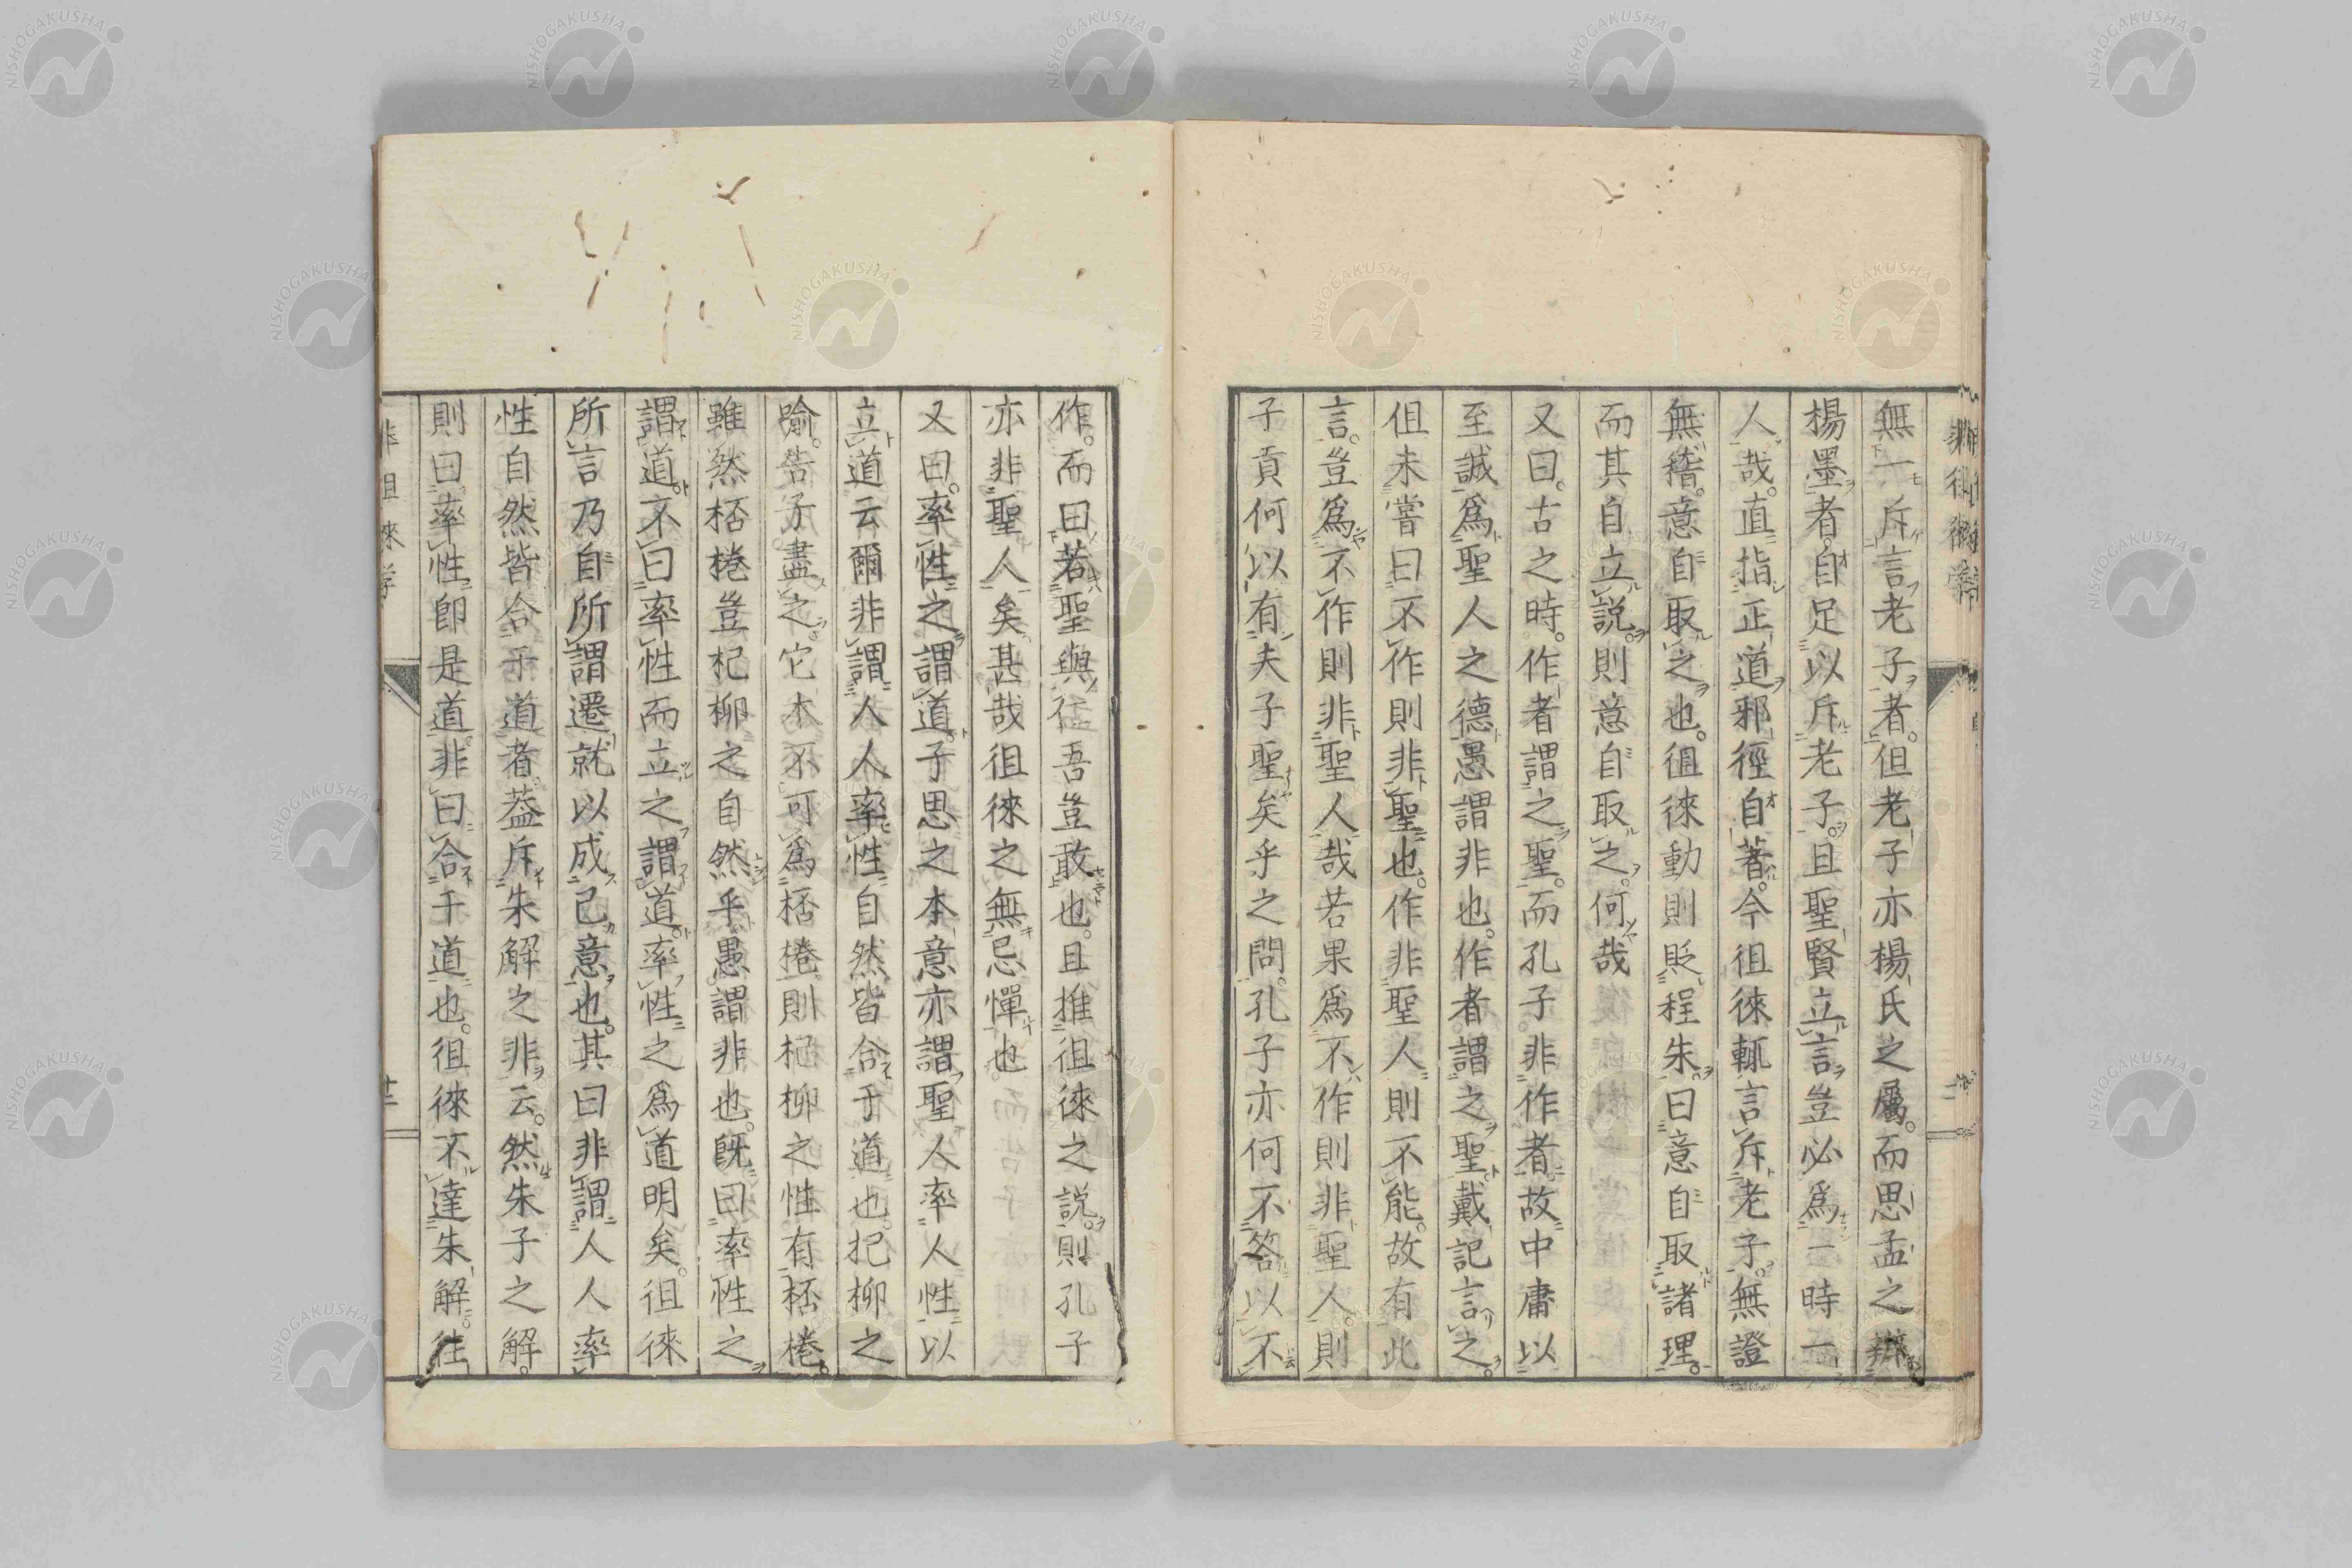 無一斥言老子者。但老子亦楊氏之屬。而思孟之辯
楊墨者。自足以斥老子。且聖賢立言豈必爲一時一
人哉。直指正道邪徑自著。今徂徠輒言斥老子。無證
無稽。意自取之也。徂徠動則貶程朱曰意自取諸理。
而其自立說。則意自取之。何哉
又曰。古之時。作者謂之聖。而孔子非作者。故中庸以
至誠爲聖人之德。愚謂非也。作者謂之聖。戴記言之。
但未嘗曰不作則非聖也。作非聖人則不能。故有此
言。豈爲不作則非聖人哉若果爲不作則非聖人則
子貢何以有夫子聖矣乎之問。孔子亦何不答以不
作。而曰若聖與仁吾豈敢也。且推徂徠之說。則孔子
亦非聖人矣。甚哉徂徠之無忌憚也
又曰。率性之謂道。子思之本意亦謂聖人率人性以
立道云爾非謂人人率性自然皆合于道也。杞柳之
喩。告子盡之。它木不可爲桮棬則杞柳之性有桮棬。
雖然桮棬豈杞柳之自然乎。愚謂非也。旣曰率性之
謂道。不曰率性而立之謂道。率性之爲道明矣。徂徠
所言乃自所謂遷就以成己意也。其曰非謂人人率
性自然皆合于道者。葢斥朱解之非云。然朱子之解。
則曰率性卽是道。非曰合于道也。徂徠不達朱解。往